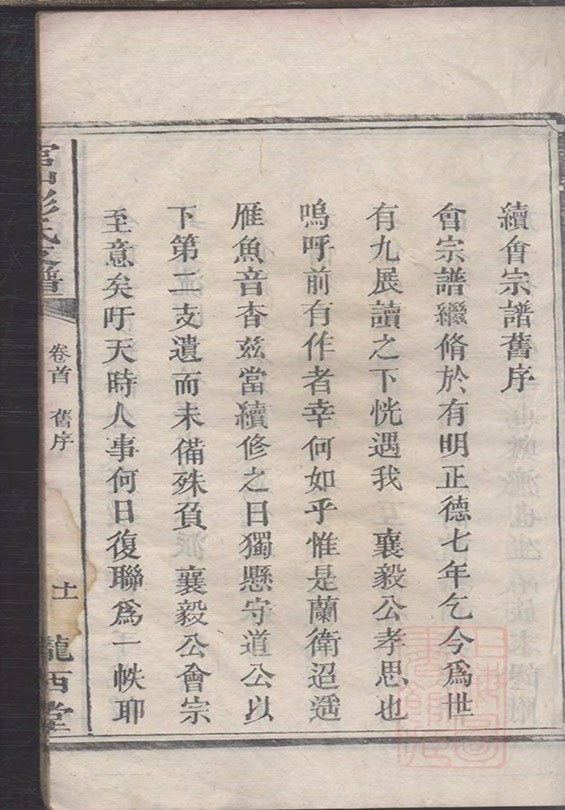 續會宗譜舊序
會宗譜繼脩於有明正德七年乞今爲世
有九展讀之下恍遇我 襄毅公孝思也
嗚呼前有作者幸何如乎惟是蘭衛迢遥
雁魚音杳茲當續修之日獨懸守道公以
下第二支遺而未備殊負 襄毅公會宗
至意矣吁天時人事何日復聯爲一帙耶
彭氏支譜
卷首 舊序
十一
隴西堂